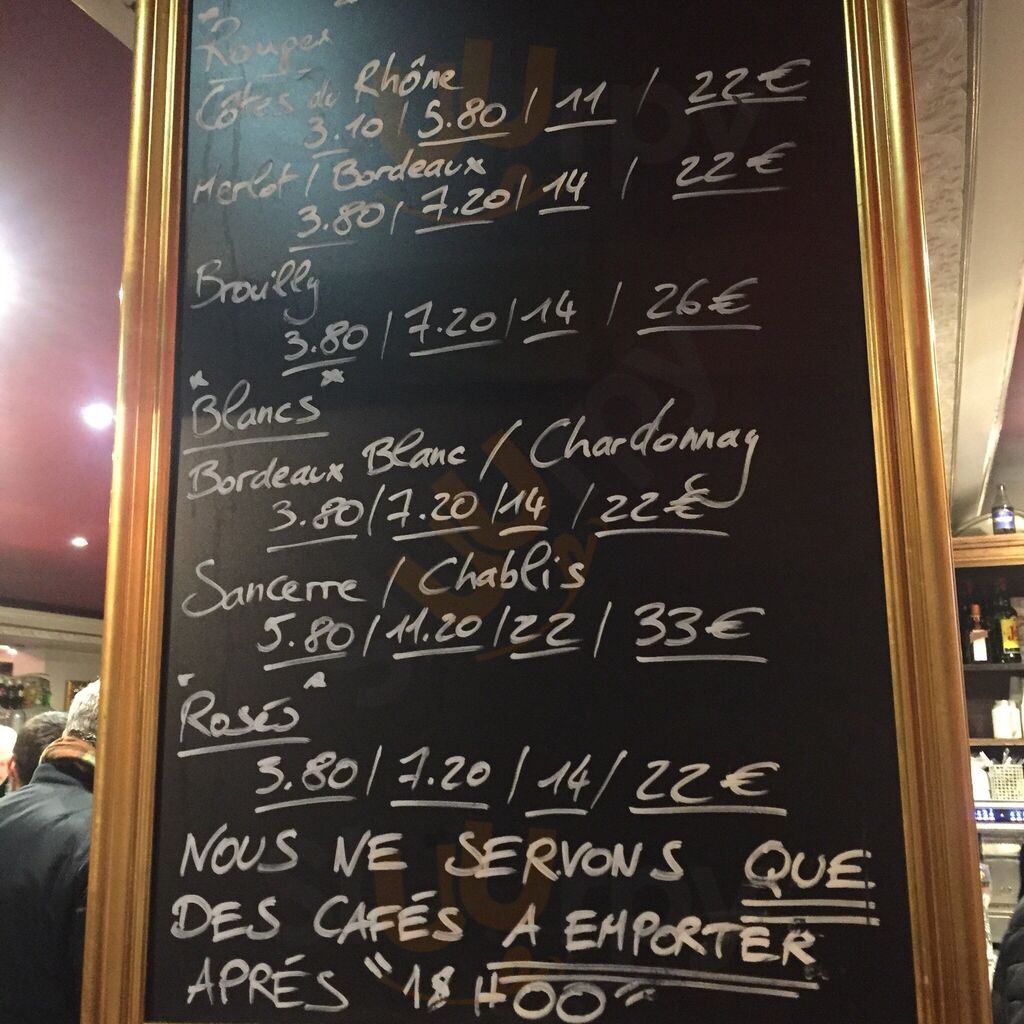 Rouges
Côtes du Rhône
3.10 / 5.80 / 11 / 22€
Merlot / Bordeaux
3.80 / 7.20 / 14 / 22€
Brouilly
3.80 / 7.20 / 14 / 26€
Blancs
Bordeaux Blanc / Chardonnay
3.80 / 7.20 / 14 / 22€
Sancerre / Chablis
5.80 / 11.20 / 22 / 33€
Rosés
3.80 / 7.20 / 14 / 22€
NOUS NE SERVONS QUE
DES CAFÉS A EMPORTER
APRÉS "18H00"